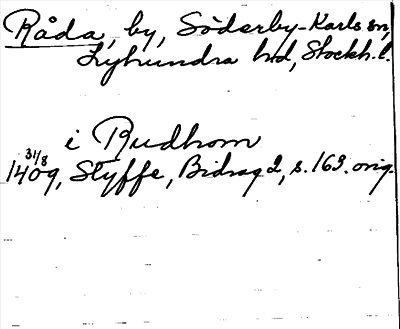 Råda, by, Söderby-Karls sn,
Lyhundra hd, Stockh. l.
i Rudhom
31/8
1409, Styffe, Bidrag 2, s. 169. orig.